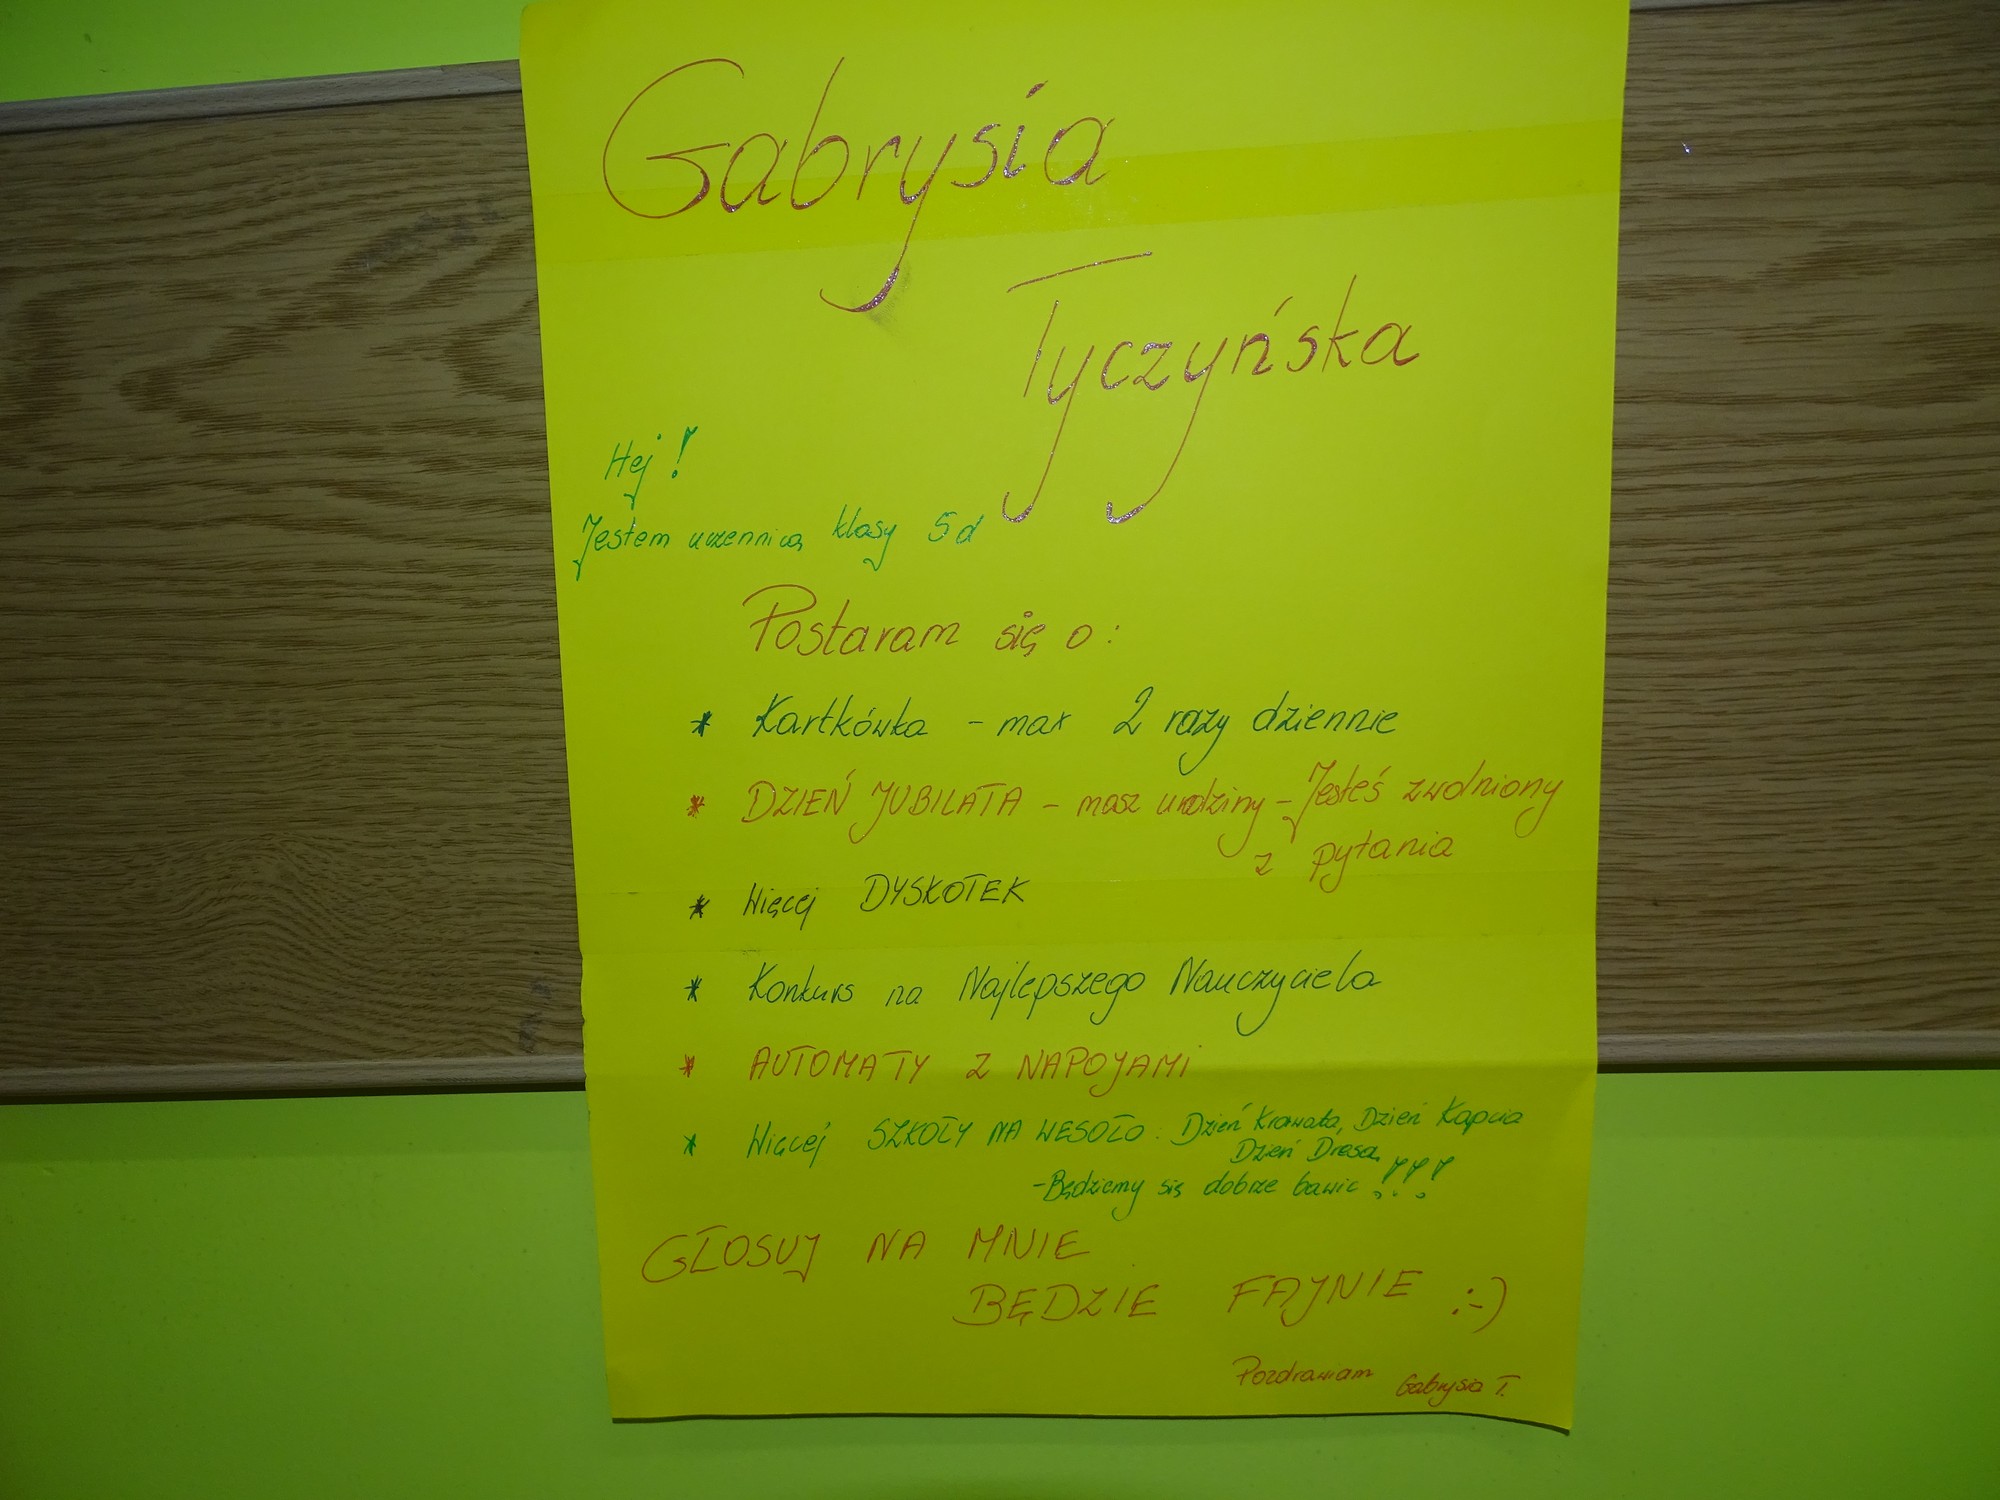 Gabrysia
Tyczyńska
Hej!
Jestem uczennicą klasy 5d
Postaram się o:
* Kartkówka - max 2 razy dziennie
* DZIEŃ JUBILATA - masz urodziny - Jesteś zwolniony
z pytania
* Więcej DYSKOTEK
* Konkurs na Najlepszego Nauczyciela
* AUTOMATY Z NAPOJAMI
* Więcej SZKOŁY NA WESOŁO: Dzień Krawata, Dzień Kapcia
Dzień Dresa,
-Będziemy się dobrze bawić !!!
GŁOSUJ NA MNIE
BĘDZIE FAJNIE :-)
Pozdrawiam Gabrysia T.